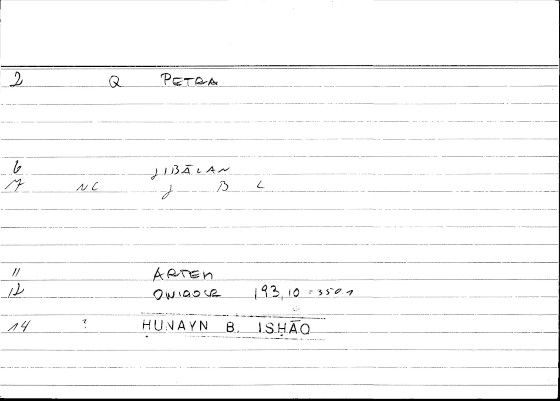 2 Q PETRA
6 JIBĀLAN
7 NC J B L
11 ARTEM
12 193,10-3501
14 ? ḤUNAYN B. ISḤĀQ